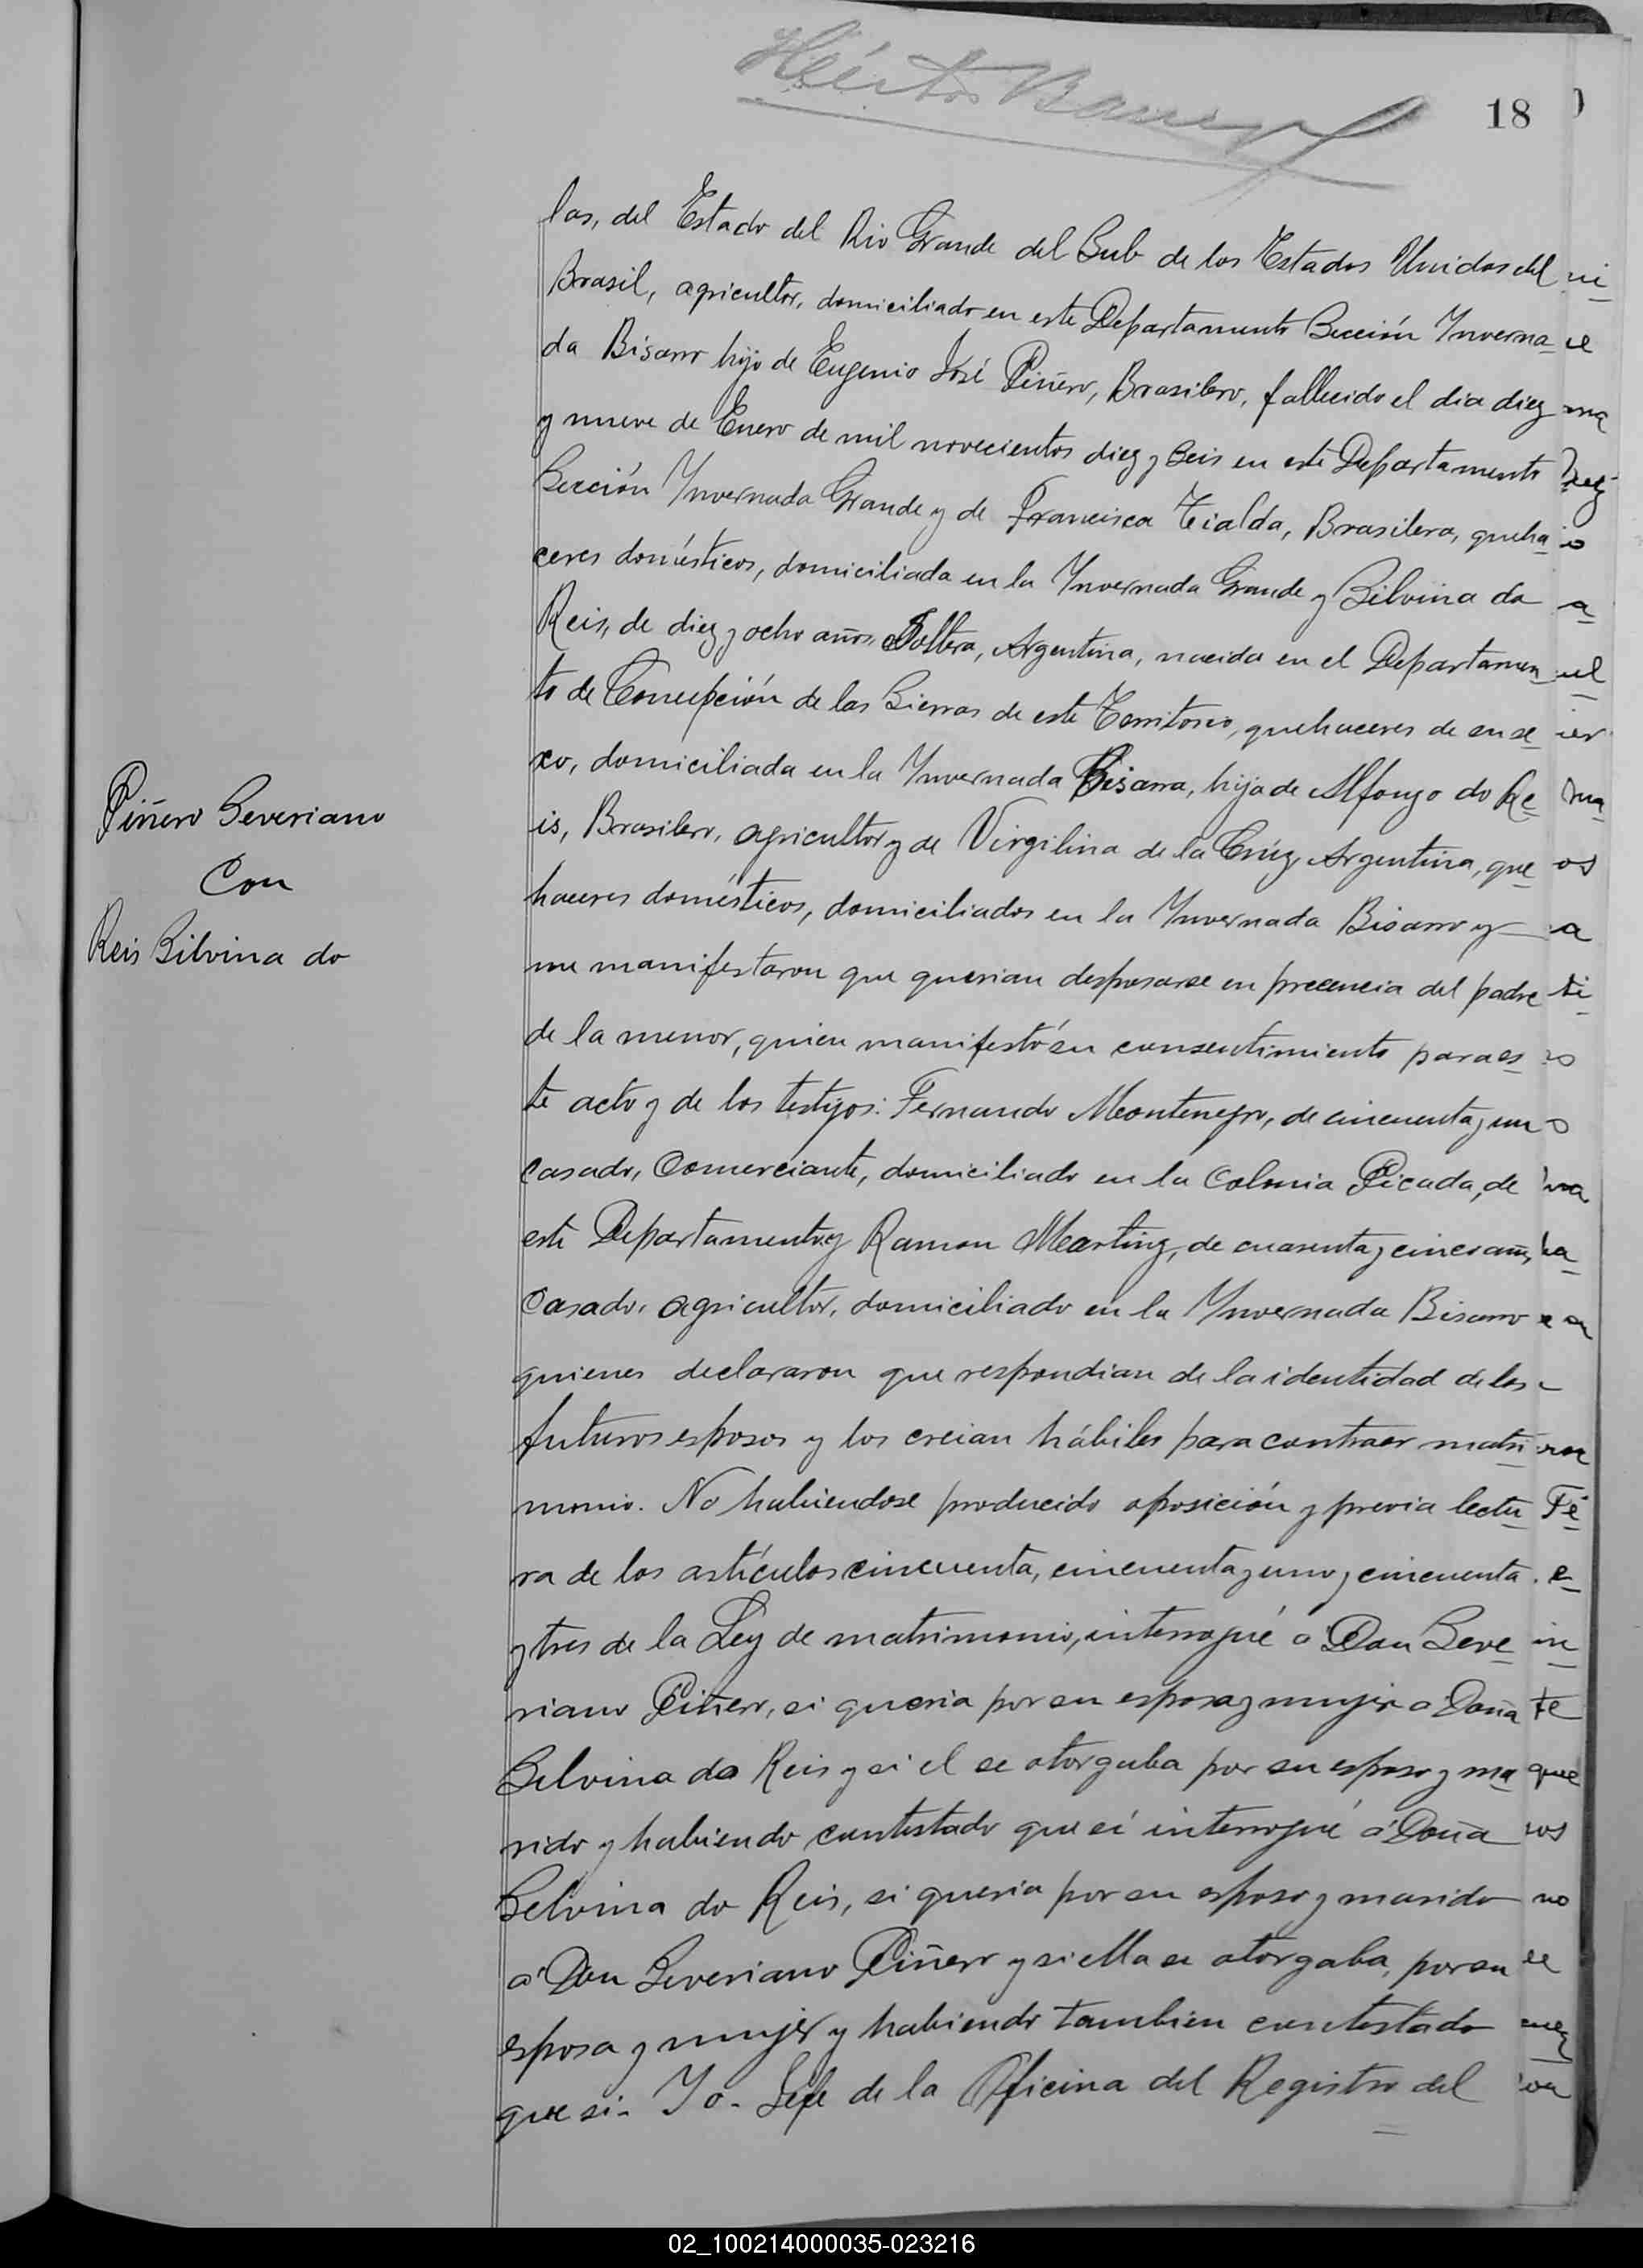 18
las, del Estado del Rio Grande del Sub de los Estados Unidos del
Brasil, agricultor, domiciliado en este Departamento Sección Inverna-
da Bisarro hijo de Eugenio José Piñero, Brasilero, fallecido el dia diez
y nueve de Enero de mil novecientos diez y seis en este Departamento
Sección Invernada Grande y de Francisca Tialda, Brasilera, queha-
ceres domésticos, domiciliada en la Invernada Grande y Silvina do
Reis, de diez y ocho años, Soltera, Argentina, nacida en el Departamen-
to de Concepción de las Sierras de este Territorio, quehaceres de su se-
xo, domiciliada en la Invernada Bisarra, hija de Alfonzo do Re-
is, Brasilero, agricultor y de Virgilina de la Crúz, Argentina, que-
haceres domésticos, domiciliados en la Invernada Bisarro y
me manifestaron que querian desposarse en precencia del padre
de la menor, quien manifestó su consentimiento para es-
te acto y de los testigos: Fernando Montenegro, de cincuenta y un
Piñero Severiano
Con
Reis Silvina do
casado, Comerciante, domiciliado en la Colonia Picada, de
este Departamento y Ramon Martinz, de cuarenta y cinco años,
Casado, agricultor, domiciliado en la Invernada Bisarro
quienes declararon que respondian de la identidad de los
futuros esposos y los creian hábiles para contraer matri-
monio. No habiendose producido oposición y previa lectu-
ra de los artículos cincuenta, cincuenta y uno y cincuenta
y tres de la Ley de matrimonio, interrogué a Don Seve-
riano Piñero, si queria por su esposa y mujer a Doña
Selvina do Reis y si el se otorgaba por su esposo y ma-
rido y habiendo contestado que sí interrogué á Doña
Selvina do Reis, si queria por su esposo y marido
á Don Severiano Piñero y si ella se otorgaba, por su
esposa y mujer y habiendo tambien contestado
que si- Yo- Jefe de la Oficina del Registro del
02_100214000035-023216